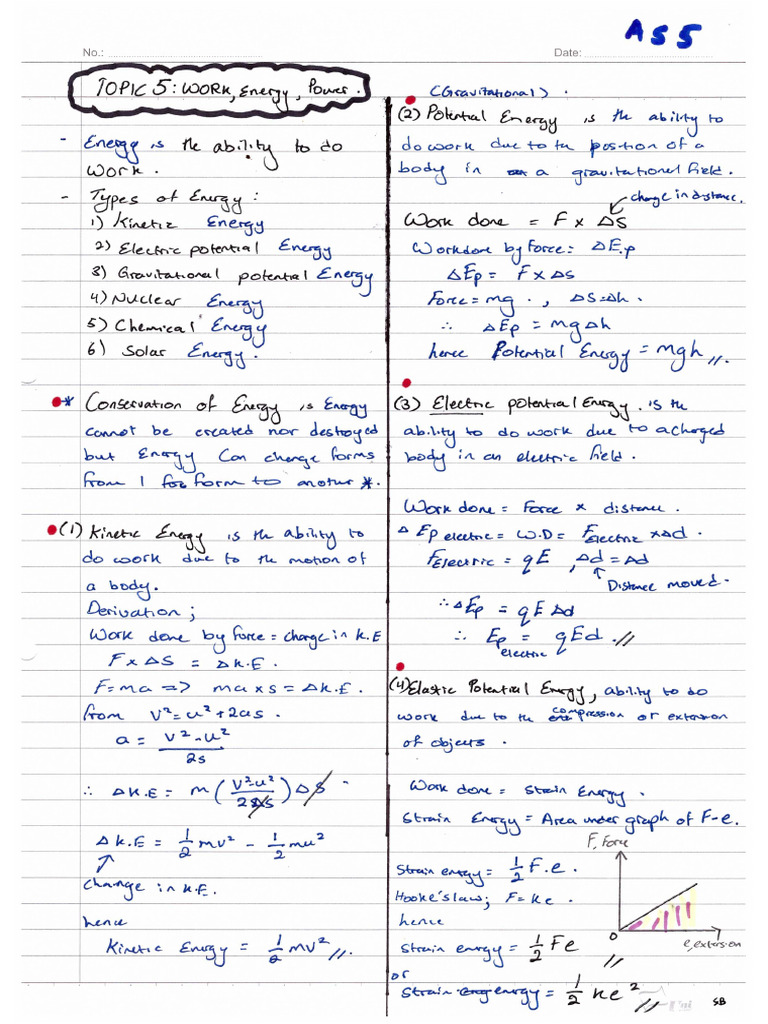 ASS
No.:
Date:
TOPIC 5: WORK, Energy, Power.
- Energy is the ability to do
work.
- Types of Energy:
1) Kinetic Energy
2) Electric potential Energy
3) Gravitational potential Energy
4) Nuclear Energy
5) Chemical Energy
6) Solar Energy.
* Conservation of Energy is Energy
cannot be created nor destroyed
but Energy can change forms
from 1 form to another *.
(1) Kinetic Energy is the ability to
do work due to the motion of
a body.
Derivation;
Work done by force = change in K.E
F x ΔS = ΔK.E.
F=ma => ma x s = ΔK.E.
from V² = u² + 2as.
a = V² - u² / 2s
∴ ΔK.E = m (V² - u² / 2ΔS) ΔS
ΔK.E = 1/2 mv² - 1/2 mu²
change in K.E.
hence
Kinetic Energy = 1/2 mv² //.
(Gravitational).
(2) Potential Energy is the ability to
do work due to the position of a
body in a gravitational field.
change in distance.
Work done = F x ΔS
Workdone by force = ΔE.p
ΔEp = F x Δs
Force = mg . , Δs = Δh .
∴ ΔEp = mgΔh
hence Potential Energy = mgh //.
(3) Electric potential Energy. is the
ability to do work due to a charged
body in an electric field.
Work done = Force x distance.
ΔEp electric = W.D = Felectric x Δd.
Felectric = qE , Δd = Δd
Distance moved.
∴ ΔEp = qEΔd
∴ Ep = qEd. //
electric
(4) Elastic Potential Energy, ability to do
work due to the compression or extension
of objects.
Work done = Strain Energy.
Strain Energy = Area under graph of F-e.
F, Force
Strain energy = 1/2 F.e.
Hooke's law; F = Ke.
hence
0
e, extension
Strain energy = 1/2 Fe //
or
Strain energy = 1/2 Ke² //
SB